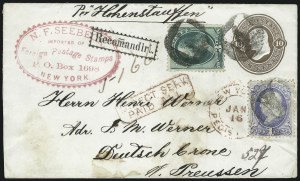 Per "Hohenstauffen"
N. F. SEEBECK
IMPORTER OF
Foreign Postage Stamps
P. O. Box 1688
NEW YORK.
Recomandirt.
DIRECT SERV.
PAID
NEW YORK
JAN
16
Herrn Heinr. Werner
Adr. F. M. Werner
Deutsch Crone
i. Preussen